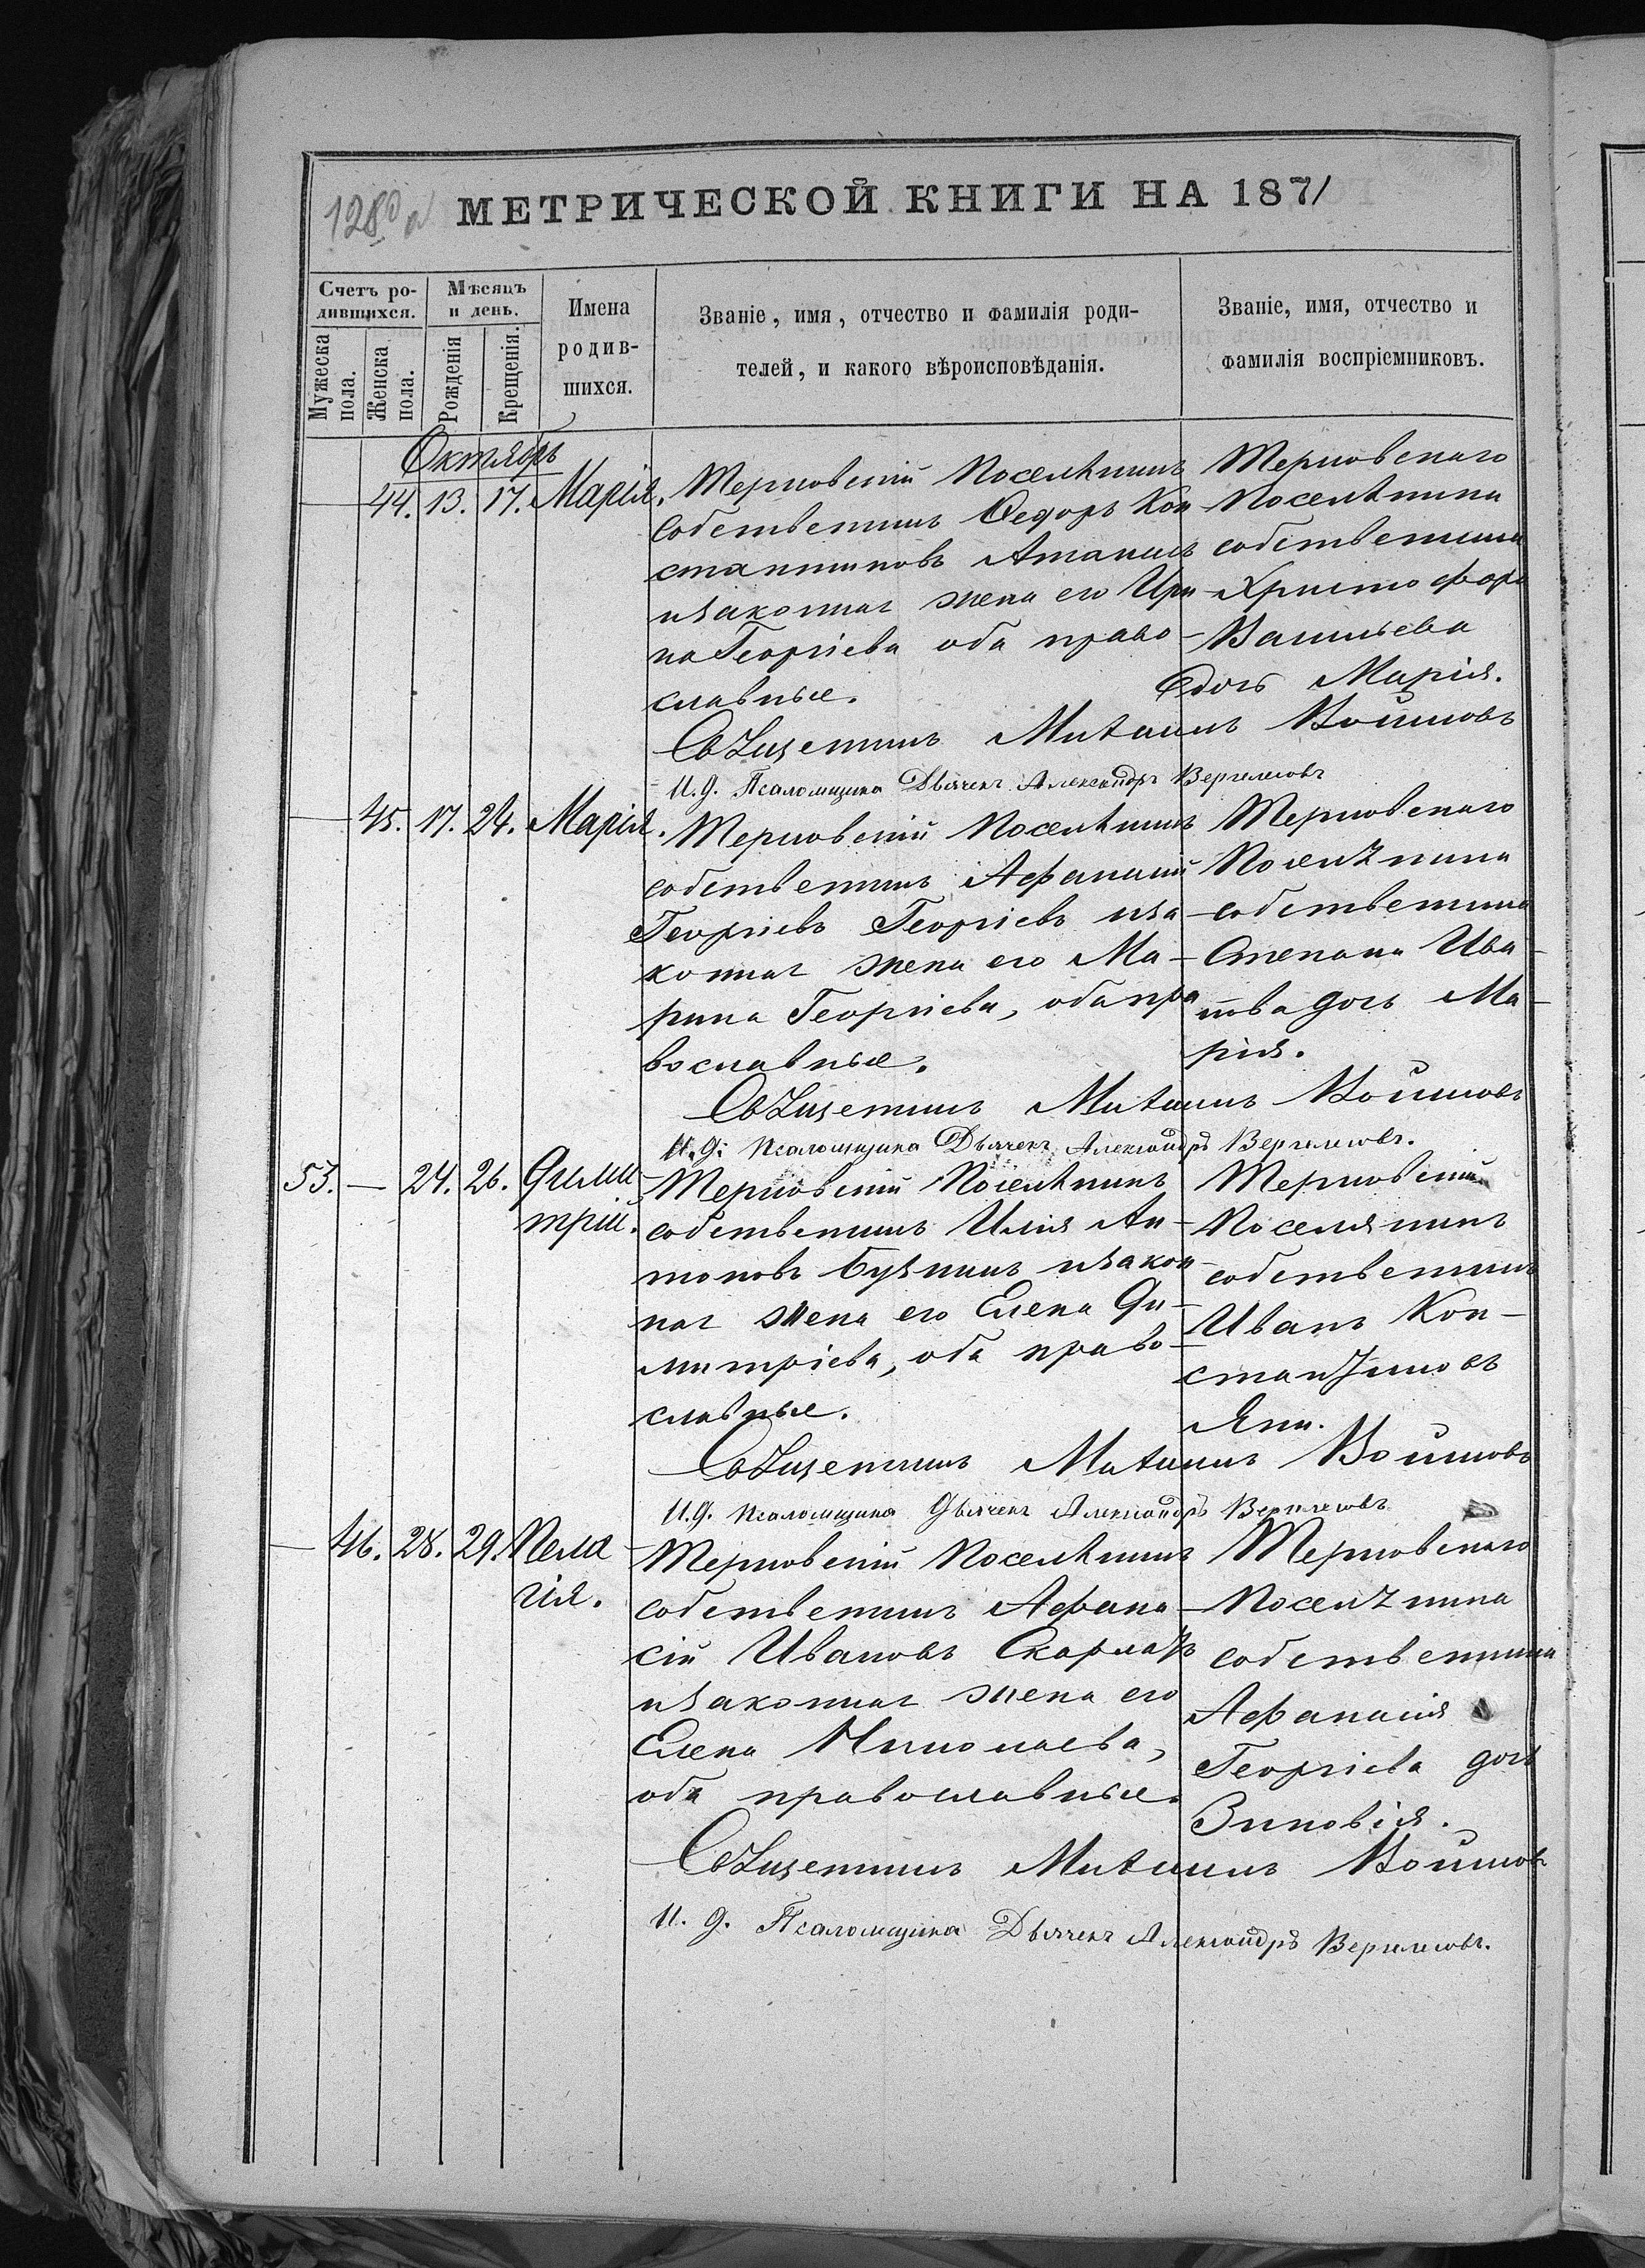 1280 об
МЕТРИЧЕСКОЙ КНИГИ НА 1871
Счетъ ро-
дившихся.
Мужеска
пола.
Женска
пола.
Мѣсяцъ
и день.
Рожденія
Крещенія.
Имена
родив-
шихся.
Званіе, имя, отчество и фамилія роди-
телей, и какого вѣроисповѣданія.
Званіе, имя, отчество и
фамилія воспріемниковъ.
Октябрь
— 44. 13. 17. Марія.
Терновскій Поселянинъ
собственникъ Ѳедоръ Кон
стантиновъ Атанасъ
изаконная жена его Ири
на Георгіева оба право-
славные.
Терновскаго
Поселянина
собственника
Христофора
Васильева
дочь Марія.
Священникъ Михаилъ Войновъ
И. д. Псаломщика Дьячекъ Александръ Вергелесовъ
— 45. 17. 24. Марія.
Терновскій Поселянинъ
собственникъ Афанасій
Георгіевъ Георгіевъ иза-
конная жена его Ма-
рина Георгіева, оба пра
вославные.
Терновскаго
Поселянина
собственника
Степана Ива-
нова дочь Ма-
рія.
Священникъ Михаилъ Войновъ
И. д. Псаломщика Дьячекъ Александръ Вергелесовъ.
53. — 24. 26. Дими
трій.
Терновскій Поселянинъ
собственникъ Илія Ан-
тоновъ Бузникъ изакон
ная жена его Елена Ди-
митріева, оба право-
славные.
Терновскій
Поселянинъ
собственникъ
Иванъ Кон-
стантиновъ
Яни.
Священникъ Михаилъ Войновъ
И. д. Псаломщика Дьячекъ Александръ Вергелесовъ
— 46. 28. 29. Пела
гія.
Терновскій Поселянинъ
собственникъ Афана-
сій Ивановъ Скарлатъ
изаконная жена его
Елена Николаева,
оба православные.
Терновскаго
Поселянина
собственника
Афанасія
Георгіева дочь
Зиновія.
Священникъ Михаилъ Войновъ
И. д. Псаломщика Дьячекъ Александръ Вергелесовъ.